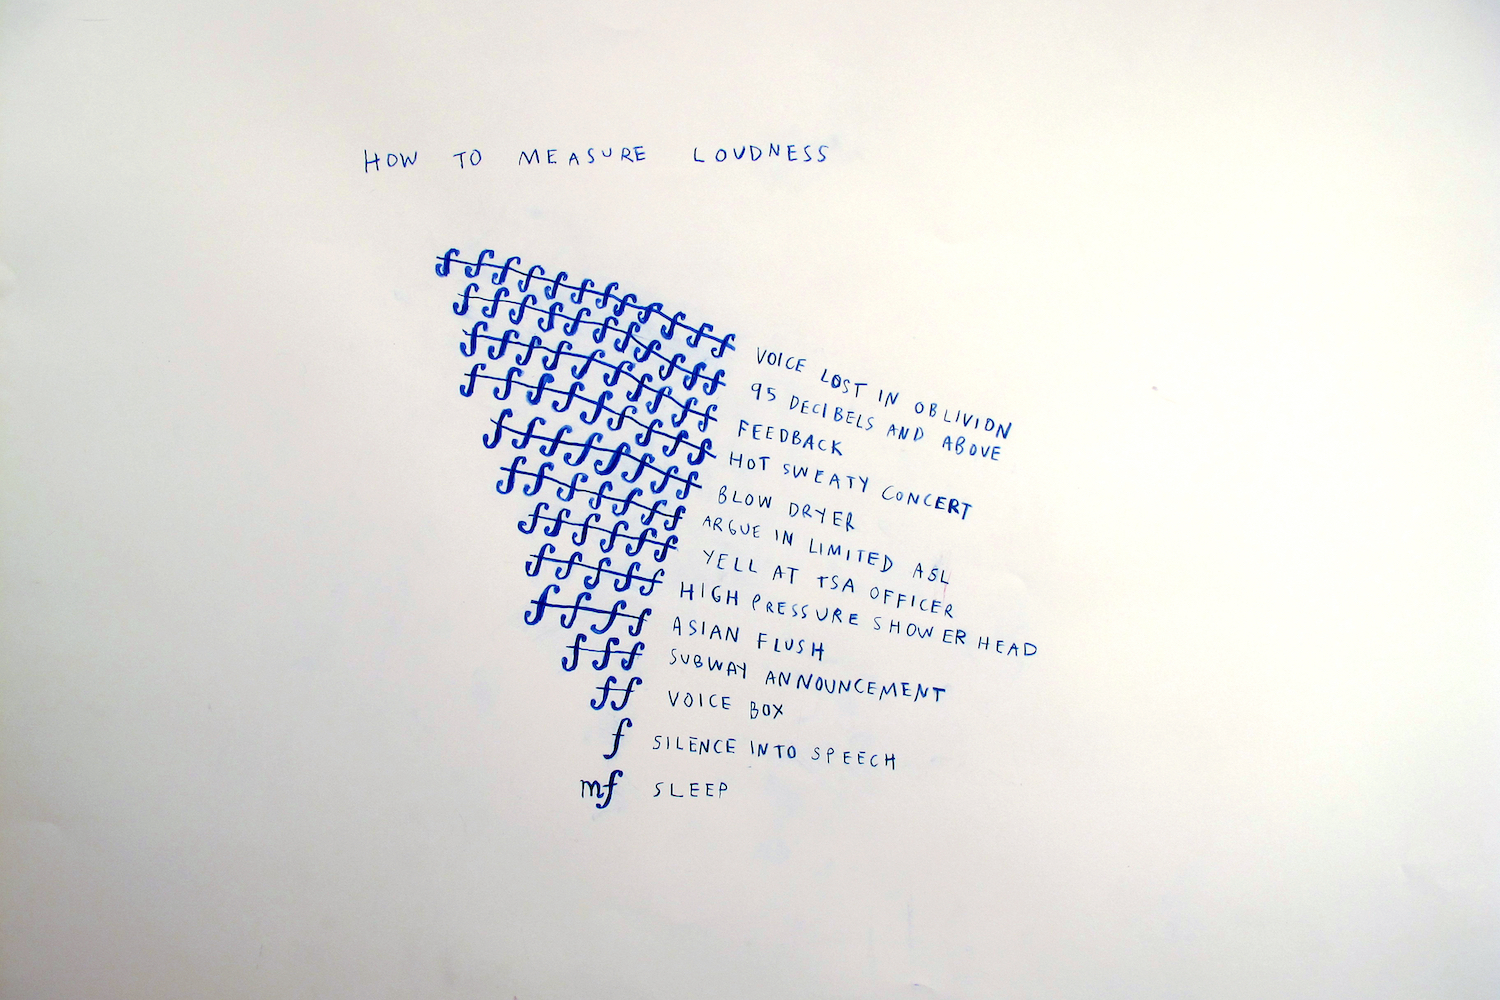 HOW TO MEASURE LOUDNESS
ffffffffffff VOICE LOST IN OBLIVION
fffffffffff 95 DECIBELS AND ABOVE
ffffffffff FEEDBACK
fffffffff HOT SWEATY CONCERT
ffffffff BLOW DRYER
fffffff ARGUE IN LIMITED ASL
ffffff YELL AT TSA OFFICER
fffff HIGH PRESSURE SHOWER HEAD
ffff ASIAN FLUSH
fff SUBWAY ANNOUNCEMENT
ff VOICE BOX
f SILENCE INTO SPEECH
mf SLEEP